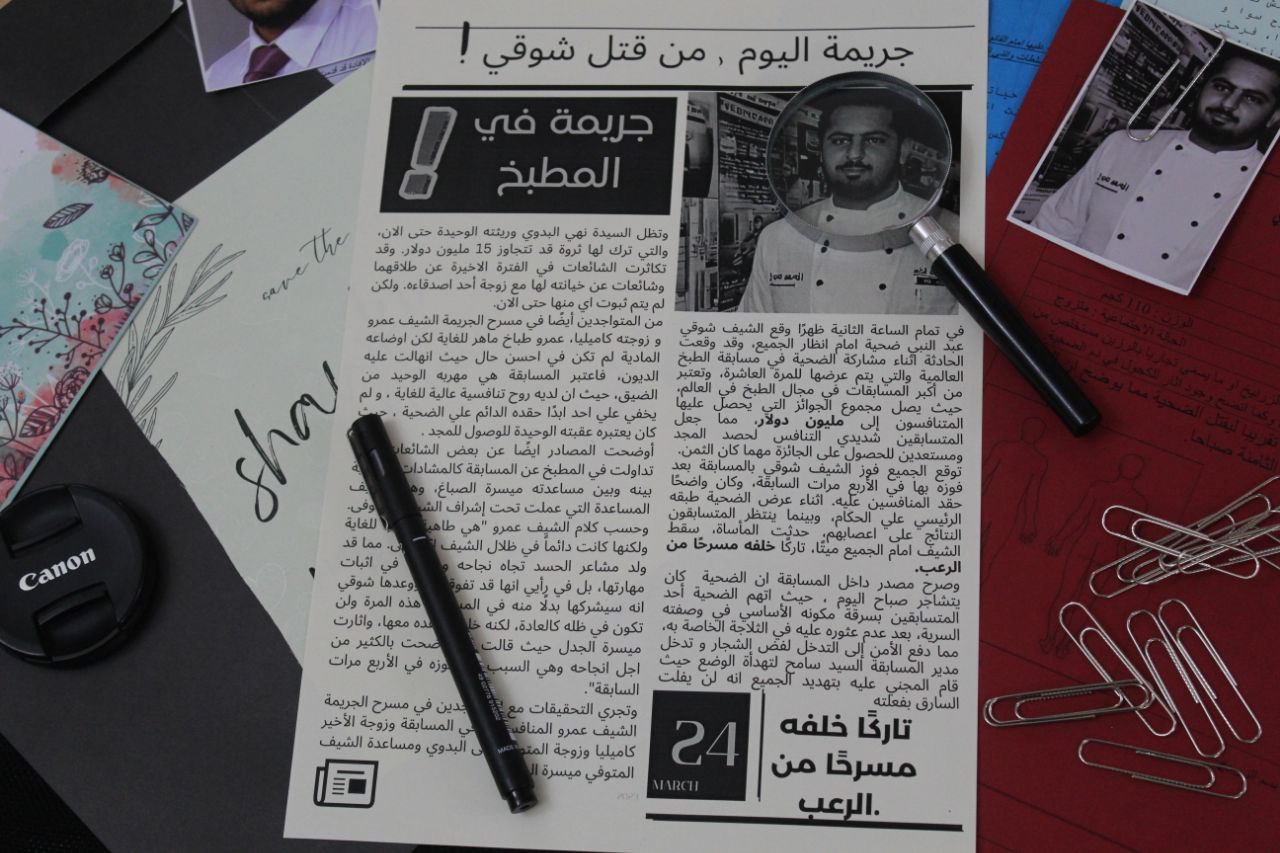 جريمة اليوم , من قتل شوقي !
جريمة في
المطبخ !
في تمام الساعة الثانية ظهرًا وقع الشيف شوقي
عبد النبي ضحية امام انظار الجميع، وقد وقعت
الحادثة أثناء مشاركة الضحية في مسابقة الطبخ
العالمية والتي يتم عرضها للمرة العاشرة، وتعتبر
من أكبر المسابقات في مجال الطبخ في العالم،
حيث يصل مجموع الجوائز التي يحصل عليها
المتنافسون إلى مليون دولار، مما جعل
المتسابقين شديدي التنافس لحصد المجد
ومستعدين للحصول على الجائزة مهما كان الثمن.
توقع الجميع فوز الشيف شوقي بالمسابقة بعد
فوزه بها في الأربع مرات السابقة، وكان واضحًا
حقد المنافسين عليه. اثناء عرض الضحية طبقه
الرئيسي علي الحكام، وبينما ينتظر المتسابقون
النتائج على اعصابهم، حدثت المأساة، سقط
الشيف امام الجميع ميتًا، تاركًا خلفه مسرحًا من
الرعب.
وصرح مصدر داخل المسابقة ان الضحية كان
يتشاجر صباح اليوم ، حيث اتهم الضحية أحد
المتسابقين بسرقة مكونه الأساسي في وصفته
السرية، بعد عدم عثوره عليه في الثلاجة الخاصة به،
مما دفع الأمن إلى التدخل لفض الشجار و تدخل
مدير المسابقة السيد سامح لتهدأة الوضع حيث
قام المجني عليه بتهديد الجميع انه لن يفلت
السارق بفعلته
تاركًا خلفه
مسرحًا من
الرعب.
24
MARCH
وتظل السيدة نهي البدوي وريثته الوحيدة حتى الان،
والتي ترك لها ثروة قد تتجاوز 15 مليون دولار. وقد
تكاثرت الشائعات في الفترة الاخيرة عن طلاقهما
وشائعات عن خيانته لها مع زوجة أحد اصدقاءه. ولكن
لم يتم ثبوت اي منها حتى الان.
من المتواجدين أيضًا في مسرح الجريمة الشيف عمرو
و زوجته كاميليا، عمرو طباخ ماهر للغاية لكن اوضاعه
المادية لم تكن في احسن حال حيث انهالت عليه
الديون، فاعتبر المسابقة هي مهربه الوحيد من
الضيق، حيث ان لديه روح تنافسية عالية للغاية ، و لم
يخفي علي احد ابدًا حقده الدائم علي الضحية ، حيث
كان يعتبره عقبته الوحيدة للوصول للمجد .
أوضحت المصادر ايضًا عن بعض الشائعات
تداولت في المطبخ عن المسابقة كالمشادات
بينه وبين مساعدته ميسرة الصباغ، وهي
المساعدة التي عملت تحت إشراف الشيف
وحسب كلام الشيف عمرو "هي طاهية للغاية
ولكنها كانت دائماً في ظلال الشيف مما قد
ولد مشاعر الحسد تجاه نجاحه في اثبات
مهارتها، بل في رأيي انها قد تفوقه ووعدها شوقي
انه سيشركها بدلًا منه في هذه المرة ولن
تكون في ظله كالعادة، لكنه معها، واثارت
ميسرة الجدل حيث قالت ضحت بالكثير من
اجل انجاحه وهي السبب فوزه في الأربع مرات
السابقة".
وتجري التحقيقات مع في مسرح الجريمة
الشيف عمرو في المسابقة وزوجة الأخير
كاميليا وزوجة البدوي ومساعدة الشيف
المتوفي ميسرة
save the
Canon
الوزن : 110 كجم
الحالة الاجتماعية : متزوج